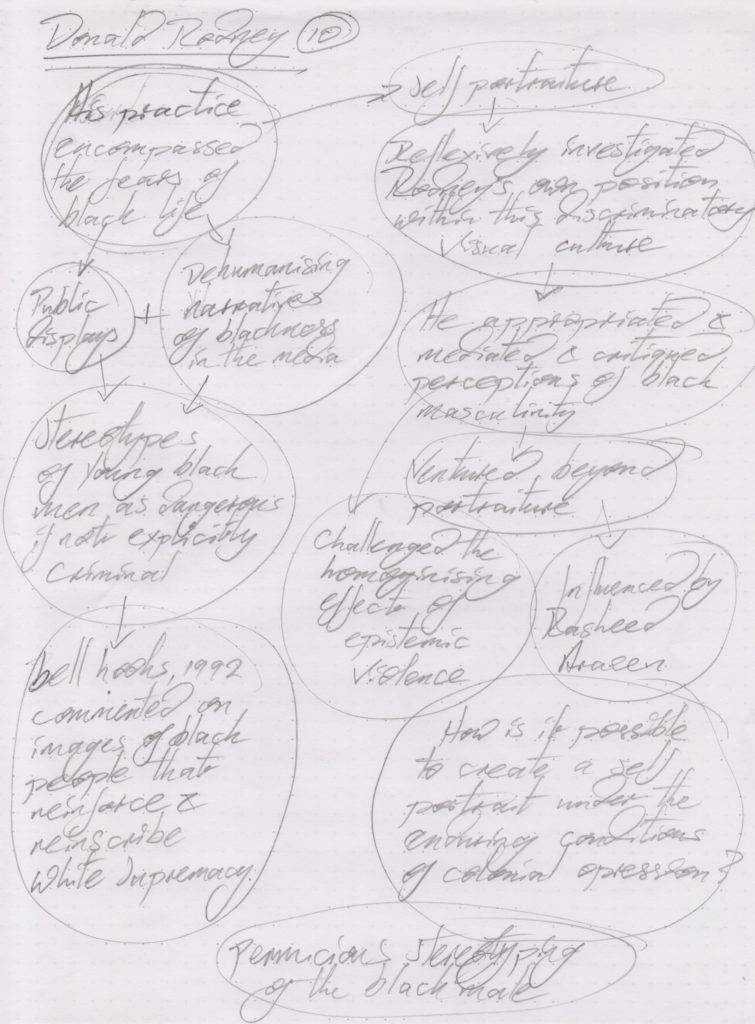 Donald Rodney 10
His practice
encompassed
the fears of
black life
Self portraiture
Reflexively investigated
Rodney's own position
within this discriminatory
visual culture
Public
displays
+
Dehumanising
narratives
of blackness
in the media
He appropriated &
mediated & critiqued
perceptions of black
masculinity
Stereotypes
of young black
men as dangerous
if not explicitly
criminal
Ventured beyond
portraiture
Challenged the
homoginising
effects of
epistemic
violence
Influenced by
Rasheed
Araeen
bell hooks, 1992
commented on
images of black
people that
reinforce &
reinscribe
white supremacy.
How is it possible
to create a self
portrait under the
enduring conditions
of colonial opression?
Pernicious stereotyping
of the black male